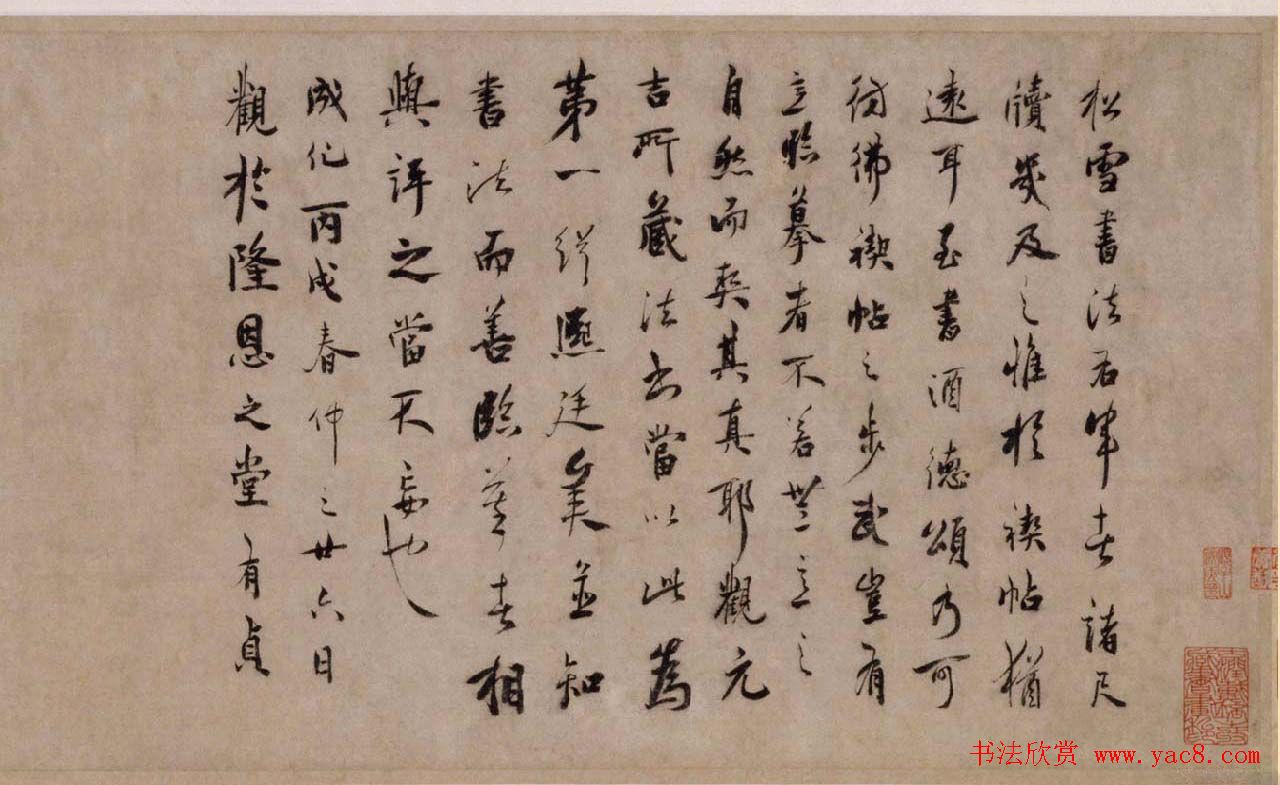 松雪書法右軍者諸尺
牘幾及之惟於禊帖猶
遠耳至書酒德頌乃可
彷彿禊帖之步武豈有
意臨摹者不若無意之
自然而契其真耶觀元
吉所藏法書當以此為
第一緝熙廷美並知
書法而善臨摹者相
與評之當不妄也
成化丙戌春仲之廿六日
觀於隆恩之堂有貞
书法欣赏 www.yac8.com